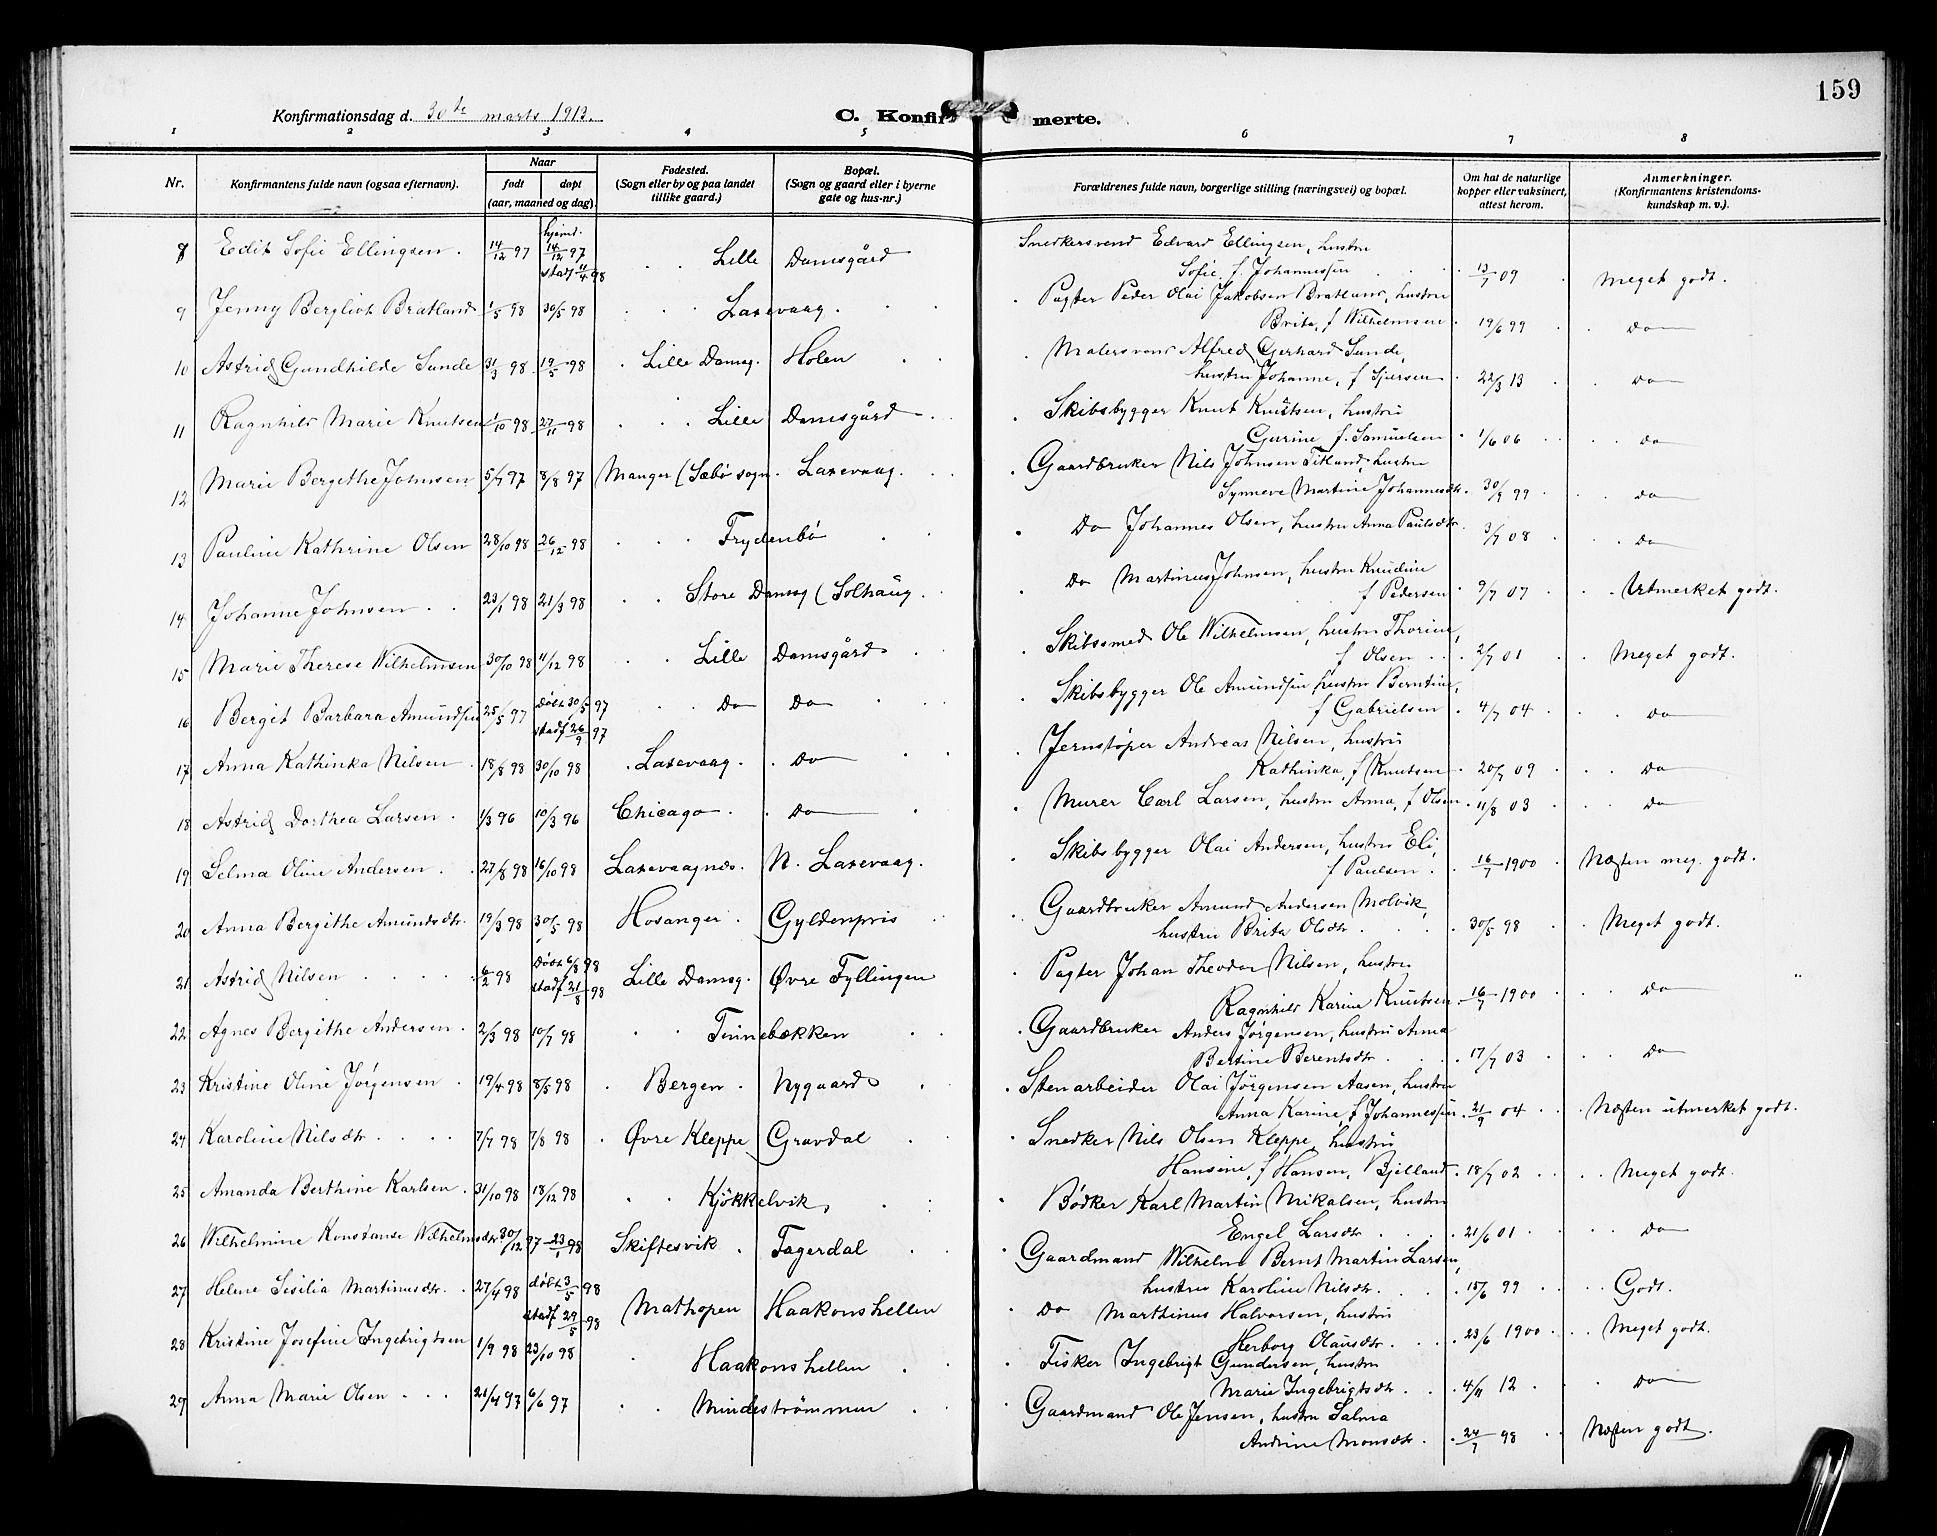 159
Konfirmationsdag d. 30te marts 1913.
C. Konfirmerte.
1 2 3 4 5 6 7 8
Nr. Konfirmantens fulde navn (ogsaa efternavn). Naar født døpt (aar, maaned og dag). Fødested. (Sogn eller by og paa landet tillike gaard.) Bopæl. (Sogn og gaard eller i byerne gate og hus-nr.) Forældrenes fulde navn, borgerlige stilling (næringsvei) og bopæl. Om hat de naturlige kopper eller vaksinert, attest herom. Anmerkninger. (Konfirmantens kristendomskundskap m. v.).
8 Edit Sofie Ellingsen. 14/12 97 hjemd. 14/12 97 stadf 11/4 98 Lille Damsgård Snedkersvend Edvard Ellingsen, hustru
Sofie f. Johannessen 13/7 09 Meget godt.
9 Jenny Bergliot Bratland 1/5 98 30/5 98 Laxevaag. Pagter Peder Olai Jakobsen Bratland, hustru
Brita, f Wilhelmsen 19/6 99 Do
10 Astrid Gundhilde Sunde 31/3 98 19/5 98 Lille Damsg. Holen Malersvend Alfred Gerhard Sunde,
hustru Johanne, f Sjursen 22/3 13 Do
11 Ragnhild Marie Knutsen 1/10 98 27/11 98 Lille Damsgård Skibsbygger Knut Knutsen, hustru
Gurine f. Samuelsen 1/6 06 Do
12 Marie Bergithe Johnsen 5/7 97 8/8 97 Manger (Sæbø sogn. Laxevaag. Gaardbruker Nils Johnsen Titland, hustru
Synneve Martine Johannesdtr. 30/9 99 Do
13 Pauline Kathrine Olsen 28/10 98 26/12 98 Frydenbø Do Johannes Olsen, hustru Anna Paulsdtr. 3/7 08 Do
14 Johanne Johnsen 23/1 98 21/3 98 Store Damsg (Solhaug. Do Martinus Johnsen, hustru Knudine
f Pedersen 9/7 07 Utmerket godt.
15 Marie Therese Wilhelmsen 30/10 98 11/12 98 Lille Damsgård Skibssmed Ole Wilhelmsen, hustru Thorine,
f Olsen 2/7 01 Meget godt.
16 Bergit Barbara Amundsen 25/5 97 Døbt 30/5 97 stadf 26/9 97 Do Do Skibsbygger Ole Amundsen, hustru Berntine,
f Gabrielsen 4/7 04 Do
17 Anna Kathinka Nilsen 18/8 98 30/10 98 Laxevaag. Do Jernstøper Andreas Nilsen, hustru
Kathinka, f Knutsen 20/7 09 Do
18 Astrid Dorthea Larsen 1/3 96 10/3 96 Chicago Do Murer Carl Larsen, hustru Anna, f Olsen 11/8 03 Do
19 Selma Oline Andersen 27/8 98 16/10 98 Laxevaagnes. N. Laxevaag. Skibsbygger Olai Andersen, hustru Eli,
f Paulsen 16/7 1900 Næsten meg. godt.
20 Anna Bergithe Amundsdtr. 19/3 98 30/5 98 Hosanger. Gyldenpris Gaardbruker Amund Andersen Molvik,
hustru Brita Olsdtr 30/5 98 Meget godt.
21 Astrid Nilsen 6/2 98 Døbt 6/8 98 stadf 21/8 98 Lille Damsg. Øvre Fyllingen Pagter Johan Theodor Nilsen, hustru
Ragnhild Karine Knutsen 16/7 1900 Do
22 Agnes Bergithe Andersen 2/3 98 10/7 98 Tennebækken Gaardbruker Anders Jørgensen, hustru Anna
Bertine Berentsdtr. 17/7 03 Do
23 Kristine Oline Jørgensen 19/4 98 8/5 98 Bergen. Nygaard Stenarbeider Olai Jørgensen Aasen, hustru
Anna Karine, f Johannessen. 21/9 04 Næsten utmerket godt.
24 Karoline Nilsdtr. 7/7 98 7/8 98 Øvre Kleppe Gravdal Snedker Nils Olsen Kleppe, hustru
Hansine, f Hansen, Bjelland. 18/7 02 Meget godt.
25 Amanda Berthine Karlsen. 31/10 98 18/12 98 Kjøkkelvik, Bødker Karl Martin Mikalsen, hustru
Engel Larsdtr 21/6 01 Do
26 Wilhelmine Konstanse Wilhelmsdtr. 30/12 97 23/1 98 Skiftesvik. Fagerdal Gaardmand Wilhelm Bernt Martin Larsen,
hustru Karoline Nilsdtr. 15/6 99 Godt.
27 Helene Sesilia Martinusdtr. 27/4 98 døbt 3/5 98 stadf 29/5 98 Mathopen Haakonshellen Do Marthinus Halvorsen, hustru
Herborg Olausdtr. 23/6 1900 Meget godt.
28 Kristine Josefine Ingebrigtsen 1/9 98 23/10 98 Haakonshellen Fisker Ingebrigt Gundersen, hustru
Marie Ingebrigtsdtr. 4/11 12 Do
29 Anna Marie Olsen 21/4 97 6/6 97 Mindestrømmen Gaardmand Ole Jensen, hustru Salma
Andrine Monsdtr. 24/7 98 Næsten godt.